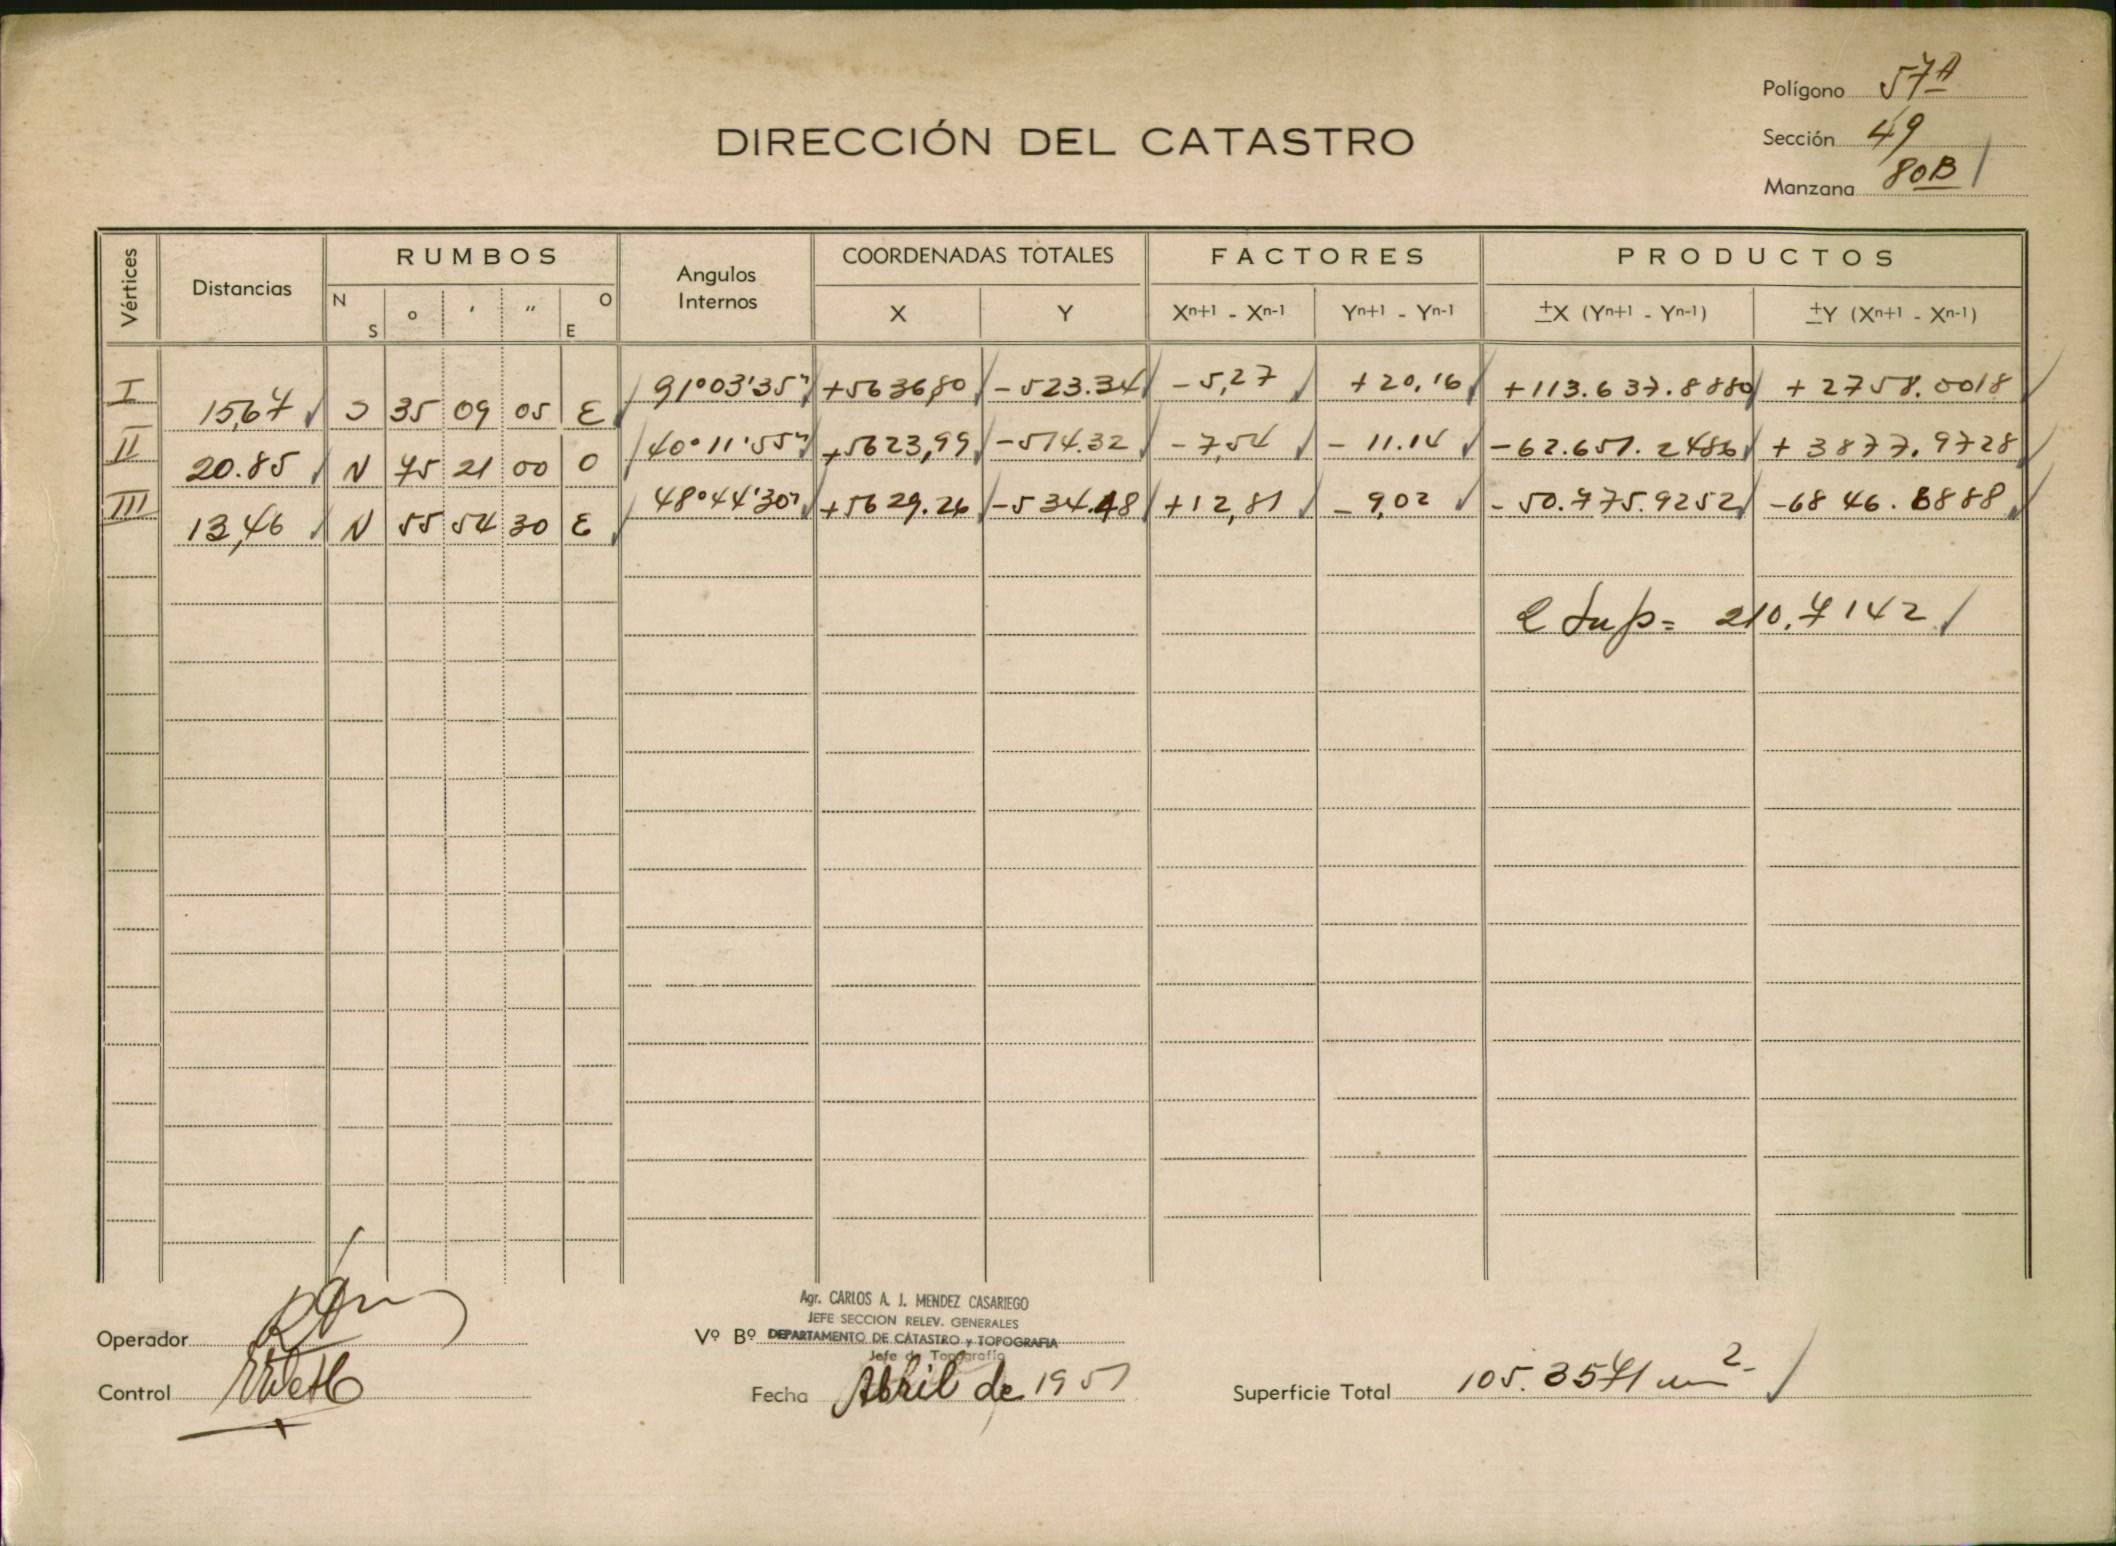 Polígono 57A
DIRECCIÓN DEL CATASTRO
Sección 49
Manzana 80B
Vértices Distancias RUMBOS Angulos Internos COORDENADAS TOTALES FACTORES PRODUCTOS
N S ° ' " E O X Y Xn+1 - Xn-1 Yn+1 - Yn-1 ±X (Yn+1 - Yn-1) ±Y (Xn+1 - Xn-1)
I 91°03'35" +5636,80 -523.34 -5,27 +20,16 +113.637.8880 +2758.0018
15,67 S 35 09 05 E
II 40°11'55" +5623,99 -514.32 -7,54 -11.14 -62.651.2486 +3877.9728
20.85 N 75 21 00 O
III 48°44'30" +5629.26 -534.48 +12,81 -9,02 -50.775.9252 -6846.6888
13,46 N 55 54 30 E
2 Sup= 210.7142
Agr. CARLOS A. J. MENDEZ CASARIEGO
JEFE SECCION RELEV. GENERALES
Operador Vº Bº DEPARTAMENTO DE CATASTRO y TOPOGRAFIA
Jefe de Topografía
Control Fecha Abril de 1951 Superficie Total 105.3571 m2